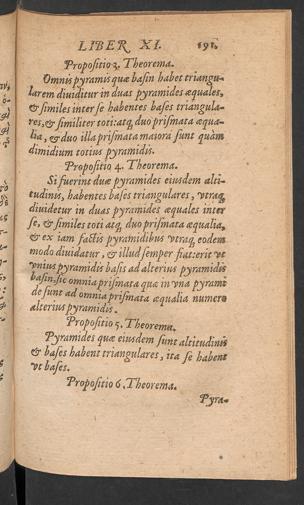 LIBER XI. 191.
Propositio 3. Theorema.
Omnis pyramis quæ basin habet triangu-
larem diuiditur in duas pyramides æquales,
& similes inter se habentes bases triangula-
res, & similiter toti: atq; duo prismata æqua-
lia, & duo illa prismata maiora sunt quàm
dimidium totius pyramidis.
Propositio 4. Theorema.
Si fuerint duæ pyramides eiusdem alti-
tudinis, habentes bases triangulares, vtraq;
diuidetur in duas pyramides æquales inter
se, & similes toti atq; duo prismata æqualia,
& ex iam factis pyramidibus vtraq; eodem
modo diuidatur, & illud semper fiat: erit vt
vnius pyramidis basis ad alterius pyramidis
basin, sic omnia prismata quæ in vna pyrami
de sunt ad omnia prismata æqualia numero
alterius pyramidis.
Propositio 5. Theorema.
Pyramides quæ eiusdem sunt altitudinis
& bases habent triangulares, ita se habent
vt bases.
Propositio 6. Theorema.
Pyra-